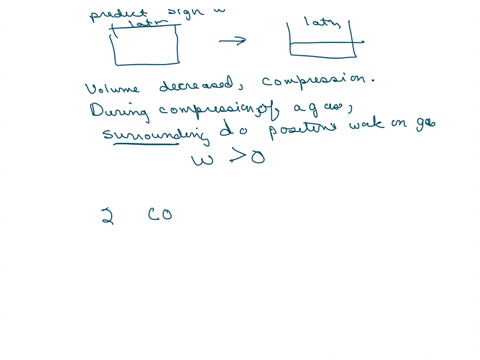 predict sign w
1atm 1atm
Volume decreased, compression.
During compression of a gas,
surrounding do positive work on gas
w > 0
2 CO